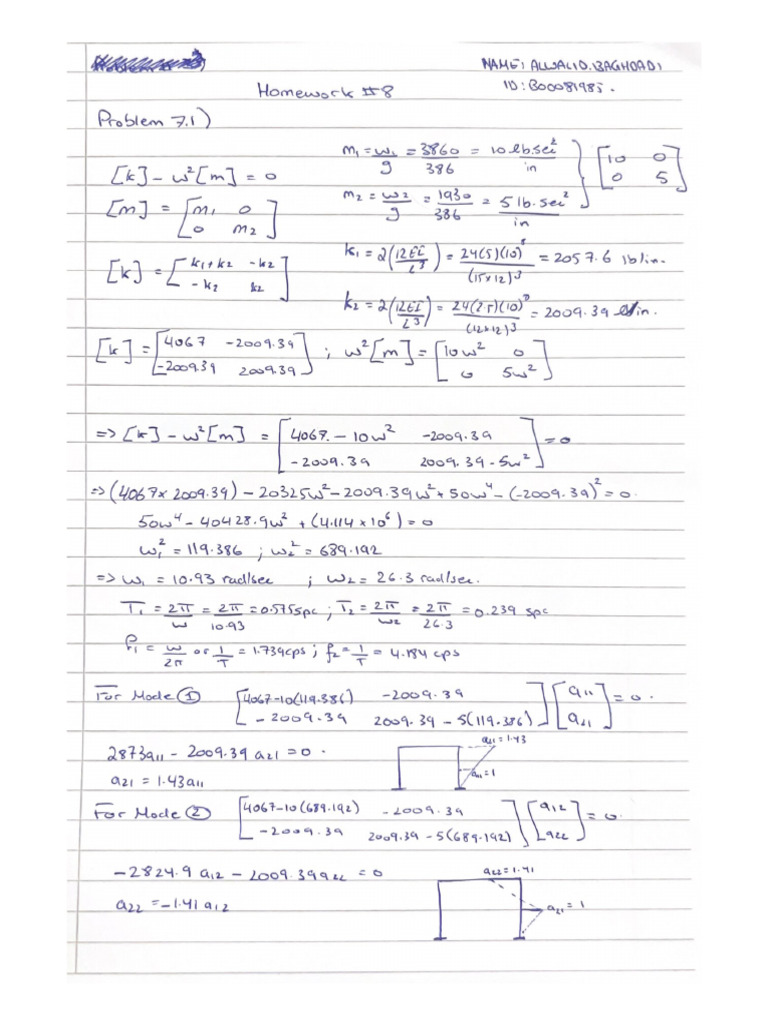 NAME: ALWALID.BAGHDADI
ID: B00081983.
Homework #8
Problem 7.1)
[k] - w²[m] = 0
m₁ = w₁/g = 3860/386 = 10 lb.sec²/in
[m] = [m₁ 0; 0 m₂]
m₂ = w₂/g = 1930/386 = 5 lb.sec²/in
[10 0; 0 5]
[k] = [k₁+k₂ -k₂; -k₂ k₂]
k₁ = 2(12EI/L³) = 24(5)(10)⁸/(15x12)³ = 2057.6 lb/in.
k₂ = 2(12EI/L³) = 24(2.5)(10)⁸/(12x12)³ = 2009.39 lb/in.
[k] = [4067 -2009.39; -2009.39 2009.39] ; w²[m] = [10w² 0; 0 5w²]
=> [k] - w²[m] = [4067. - 10w² -2009.39; -2009.39 2009.39 - 5w²] = 0
=> (4067 x 2009.39) - 20325w² - 2009.39w² + 50w⁴ - (-2009.39)² = 0.
50w⁴ - 40428.9w² + (4.114 x 10⁶) = 0
w₁² = 119.386 ; w₂² = 689.192
=> w₁ = 10.93 rad/sec ; w₂ = 26.3 rad/sec.
T₁ = 2π/w = 2π/10.93 = 0.575spc ; T₂ = 2π/w₂ = 2π/26.3 = 0.239 spc
f₁ = w/2π or 1/T = 1.739cps ; f₂ = 1/T = 4.184 cps
For Mode ① [4067-10(119.386) -2009.39; -2009.39 2009.39 - 5(119.386)] [a₁₁; a₂₁] = 0.
2873a₁₁ - 2009.39 a₂₁ = 0.
a₂₁ = 1.43
a₁₁ = 1
a₂₁ = 1.43a₁₁
For Mode ② [4067-10(689.192) -2009.39; -2009.39 2009.39 - 5(689.192)] [a₁₂; a₂₂] = 0.
-2824.9 a₁₂ - 2009.39a₂₂ = 0
a₂₂ = 1.41
a₂₂ = -1.41 a₁₂
a₂₁ = 1